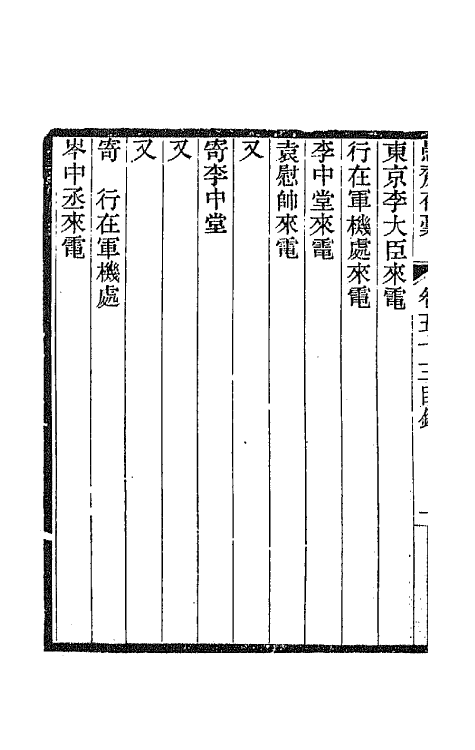 愚齋存稾 卷五十三目錄 一
東京李大臣來電
行在軍機處來電
李中堂來電
袁慰帥來電
又
寄李中堂
又
又
寄 行在軍機處
岑中丞來電